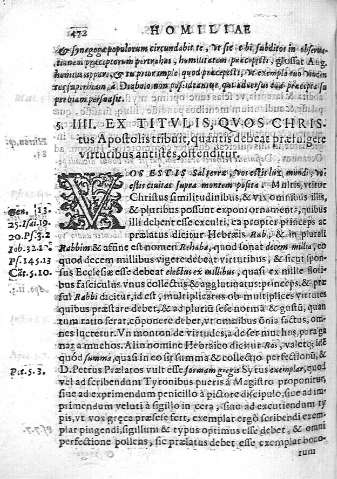 1472 HOMILIAE
& Synagoga populorum circundabit te, ut sic tibi subditos in observa-
tionem praeceptorum pertrahas, humilitatem praecepisti, glossat Aug.
humilis appare, & tu prior imple quod praecepisti, ut exemplo tuo
superatos, à Diabolo non
probrium persuasit.
5. IIII. EX TITULIS, QVOS CHRIS-
tus Apostolis tribuit, quantis debeat praefulgere
virtutibus antistes, ostenditur.
VOS ESTIS Sal terrae, Vos estis lux mundi, vos
estis civitas supra montem posita. Multis, utitur
Gen. 13. Christus similitudinibus, & vix omnibus illis,
25. Isai. 19. & pluribus possunt exponi ornamenti, quibus
29. Ps. 3.2 illi debent esse exculti, ea propter princeps ac
praelatus dicitur Hebraeis Rab, & in plurali
Iob. 32.1. Rabbim & affine est nomen Rebaba, quod sonat decem milia, eo
Ps. 145.13 quod decem millibus vigere debeat virtutibus, & sicut spon-
Cāt. 5.10. sus Ecclesiae esse debeat electus ex millibus, quasi ex mille floti-
bus fasciculus unus collectus & agglutinatus: princeps & prae-
sul Rabbi dicitur, id est, multiplicatus ob multiplices virtutes
quibus praestare debet, & ad plurium sese normā & gustū, quan-
tum ratio feret, cōponere debet, ut omnibus ōnia factus, om-
nes lucretur. Un monton de virtudes, a deser muchos, para ga-
nar a muchos. Alio nomine Hebraico dicitur Ros, valet q; idem
quod summa, quasi in eo sit summa & collectio perfectionū, &
P. 1. 5. 3. D. Petrus Praelatos vult esse formam gregis Syrus exemplar, quod
vel ad scribendum Tyronibus pueris à Magistro proponitur,
sive ad exprimendum penicillo à pictore discipulo, sive ad im-
primendum veluti à sigillo in cera, sive ad excutiendum ty-
pis, ut vox graece praesefert, exemplar ergò scribendi exem-
plar pingendi, sigillum & typus optimus esse debet, & omni
perfectione pollens, sic praelatus debet esse exemplar bono-
rum